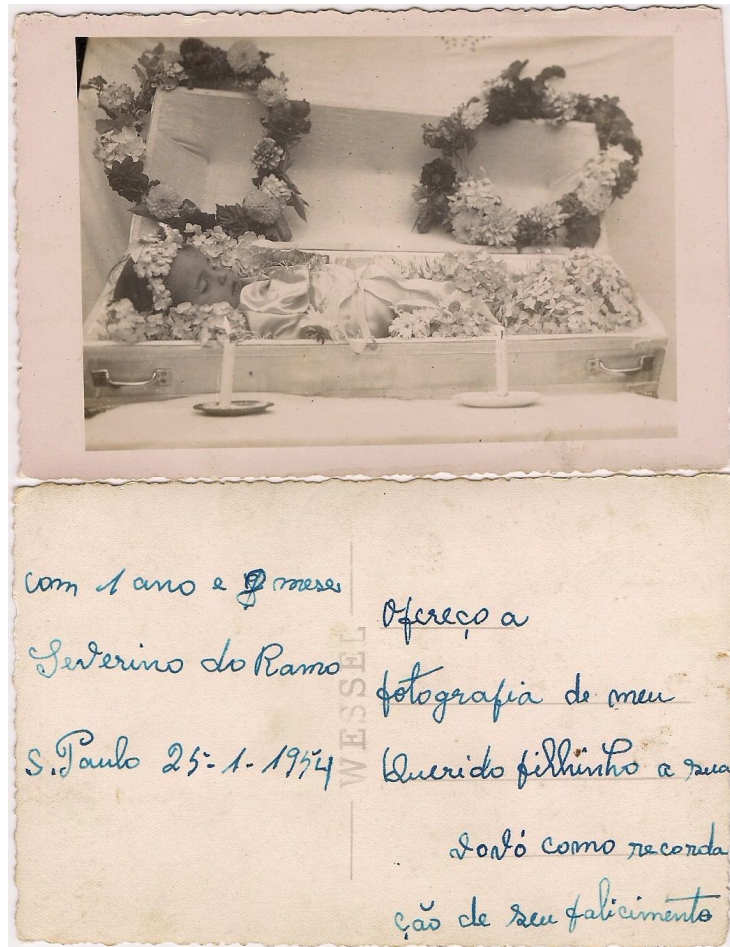 com 1 ano e 8 meses
Severino do Ramo
S. Paulo 25-1-1954
WESSEL
Ofereço a
fotografia de meu
Querido filhinho a sua
vovó como recorda
ção de seu falicimento